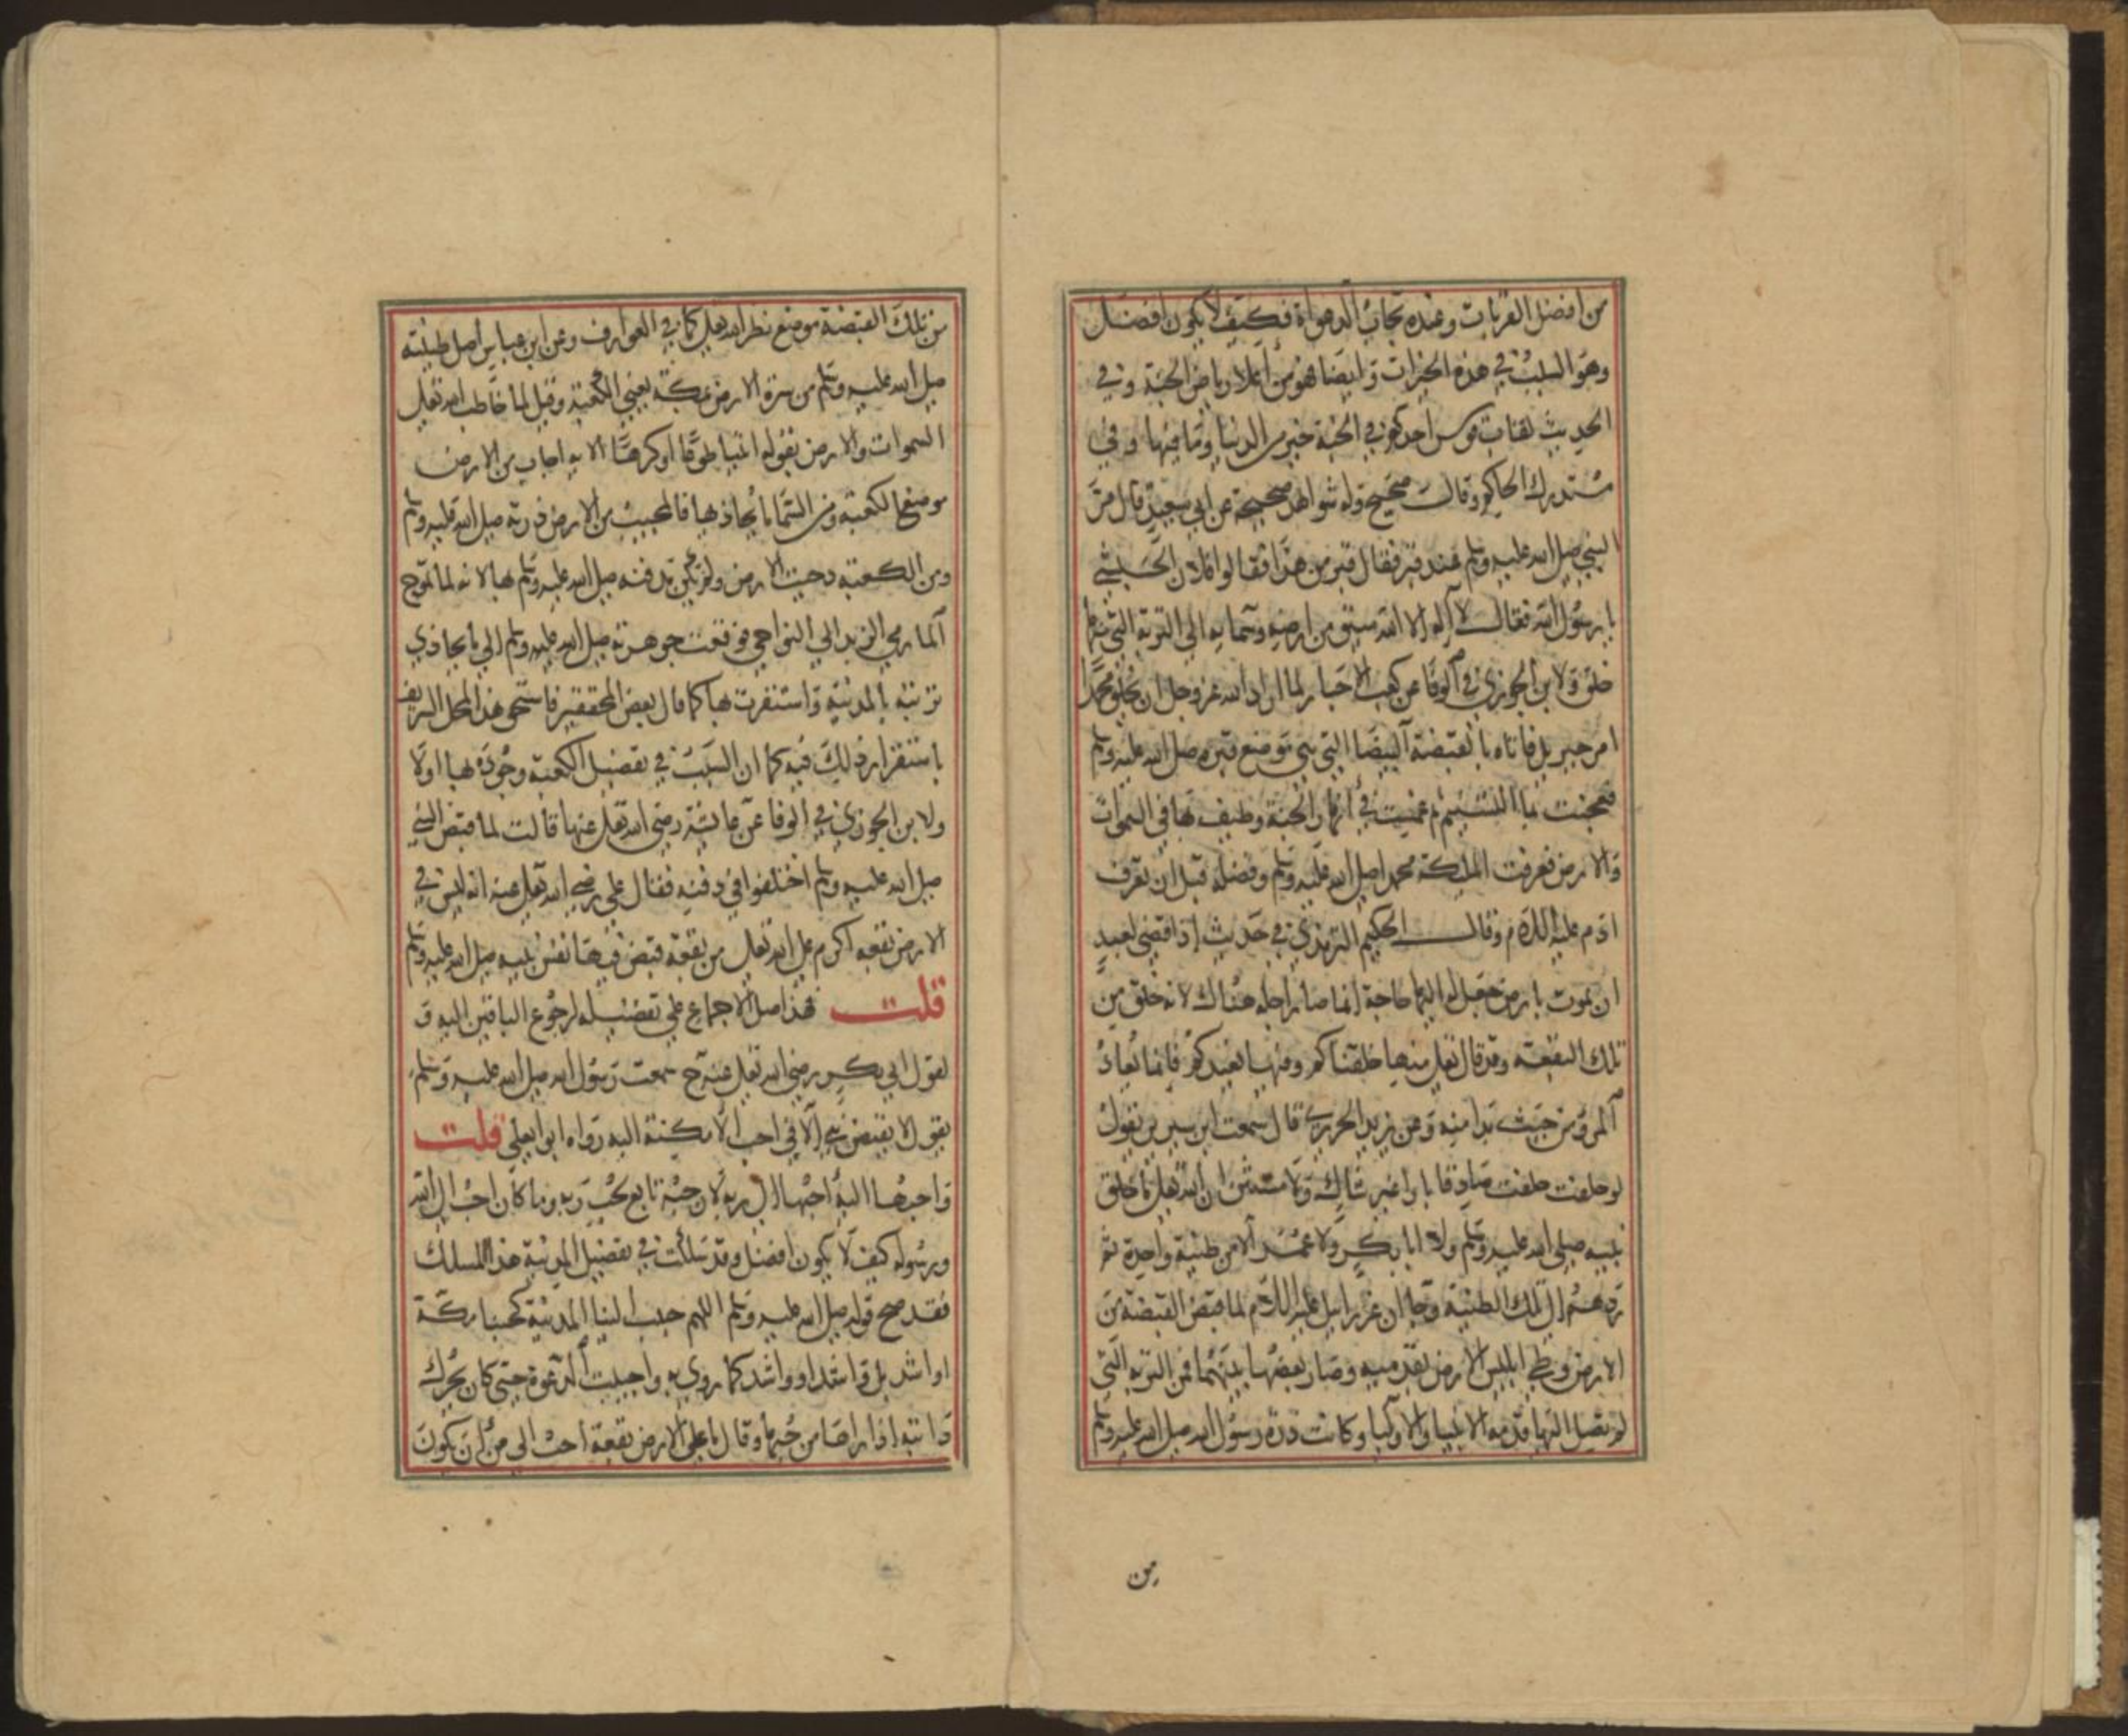 من افضل القربات وعنده تجاب الدعوات فكيف لا يكون افضل
وهو السبب في هذه الخيرات وايضا فهو من اعلا رياض الجنة وفي
الحديث لقاب قوس احدكم في الجنة خير من الدنيا وما فيها وفي
مستدرك الحاكم وقال صحيح وله شواهد صحيحة عن ابي سعيد قال مر
النبي صلى الله عليه وسلم عند قبر فقال قبر من هذا فقالوا فلان الحبشي
يا رسول الله فقال لا اله الا الله سيق من ارضه وسمايه الى التربة التي منها
خلق ولابن الجوزي في الوفا عن كعب الاحبار لما اراد الله عز وجل ان يخلق محمدا
امر جبريل فاتاه بالقبضة البيضا التي هي موضع قبره صلى الله عليه وسلم
فعجنت بما التسنيم ثم غمست في انهار الجنة وطيف بها في السموات
والارض فعرفت الملكة محمدا صلى الله عليه وسلم وفضله قبل ان تعرف
ادم عليه السلام وقال الحكيم الترمذي في حديث اذا قضى لعبد
ان يموت بارض جعل له اليها حاجة انما صار اجله هناك لانه خلق من
تلك البقعة وقد قال تعالى منها خلقناكم وفيها نعيدكم فانما يعاد
المرو من حيث بدا منه وعن يزيد الحريري قال سمعت ابن سيرين يقول
لو حلفت حلفت صادقا بارا غير شاك ولا مستثن ان الله تعالى ما خلق
نبيه صلى الله عليه وسلم ولا ابا بكر ولا عمر الا من طينة واحدة ثم
ردهم الى تلك الطينة وجا ان عزرايل عليه السلام لما قبض القبضة من
الارض وطي ابليس الارض بقدميه وصار بعضها بينهما فمن التربة التي
لم تصل اليها قدمه الانبيا والاوليا وكانت درة رسول الله صلى الله عليه وسلم
من
من تلك القبضة موضع نظر الله تعالى كما في العوارف وعن ابن عباس اصل طينته
صلى الله عليه وسلم من سرة الارض بمكة يعني الكعبة وقيل لما خاطب الله تعالى
السموات والارض بقوله ائتيا طوعا او كرها الاية اجاب من الارض
موضع الكعبة ومن السما ما يحاذيها فالمجيب من الارض درته صلى الله عليه وسلم
ومن الكعبة دحيت الارض ولم يكن مدفنه صلى الله عليه وسلم بها لانه لما تموج
الما رمى الزبد الى النواحي فوقعت جوهرته صلى الله عليه وسلم الى ما يحاذي
تربته بالمدينة واستقرت بها كما قال بعض المحققين فاستحق هذا المحل الشريف
باستقرار ذلك فيه كما ان السبب في تفضيل الكعبة وجوده بها اولا
ولابن الجوزي في الوفا عن عائشة رضي الله تعالى عنها قالت لما قبض النبي
صلى الله عليه وسلم اختلفوا في دفنه فقال علي رضي الله تعالى عنه انه ليس في
الارض بقعة اكرم على الله تعالى من بقعة قبض فيها نفس نبيه صلى الله عليه وسلم
قلت فهذا اصل الاجماع على تفضيله لرجوع الباقين اليه و
لقول ابي بكر رضي الله تعالى عنه ح سمعت رسول الله صلى الله عليه وسلم
يقول لا يقبض نبي الا في احب الامكنة اليه رواه ابو يعلى قلت
واحبها اليه احبها الى ربه لان حبه تابع لحب ربه وما كان احب الى الله
ورسوله كيف لا يكون افضل وقد سلكت في تفضيل المدينة هذا المسلك
فقد صح قوله صلى الله عليه وسلم اللهم حبب الينا المدينة كحبنا مكة
او اشد بل واشد او واشد كما روي به واجيبت الدعوة حتى كان يحرك
دابته اذا راها من حبها وقال ما على الارض بقعة احب الي من ان يكون